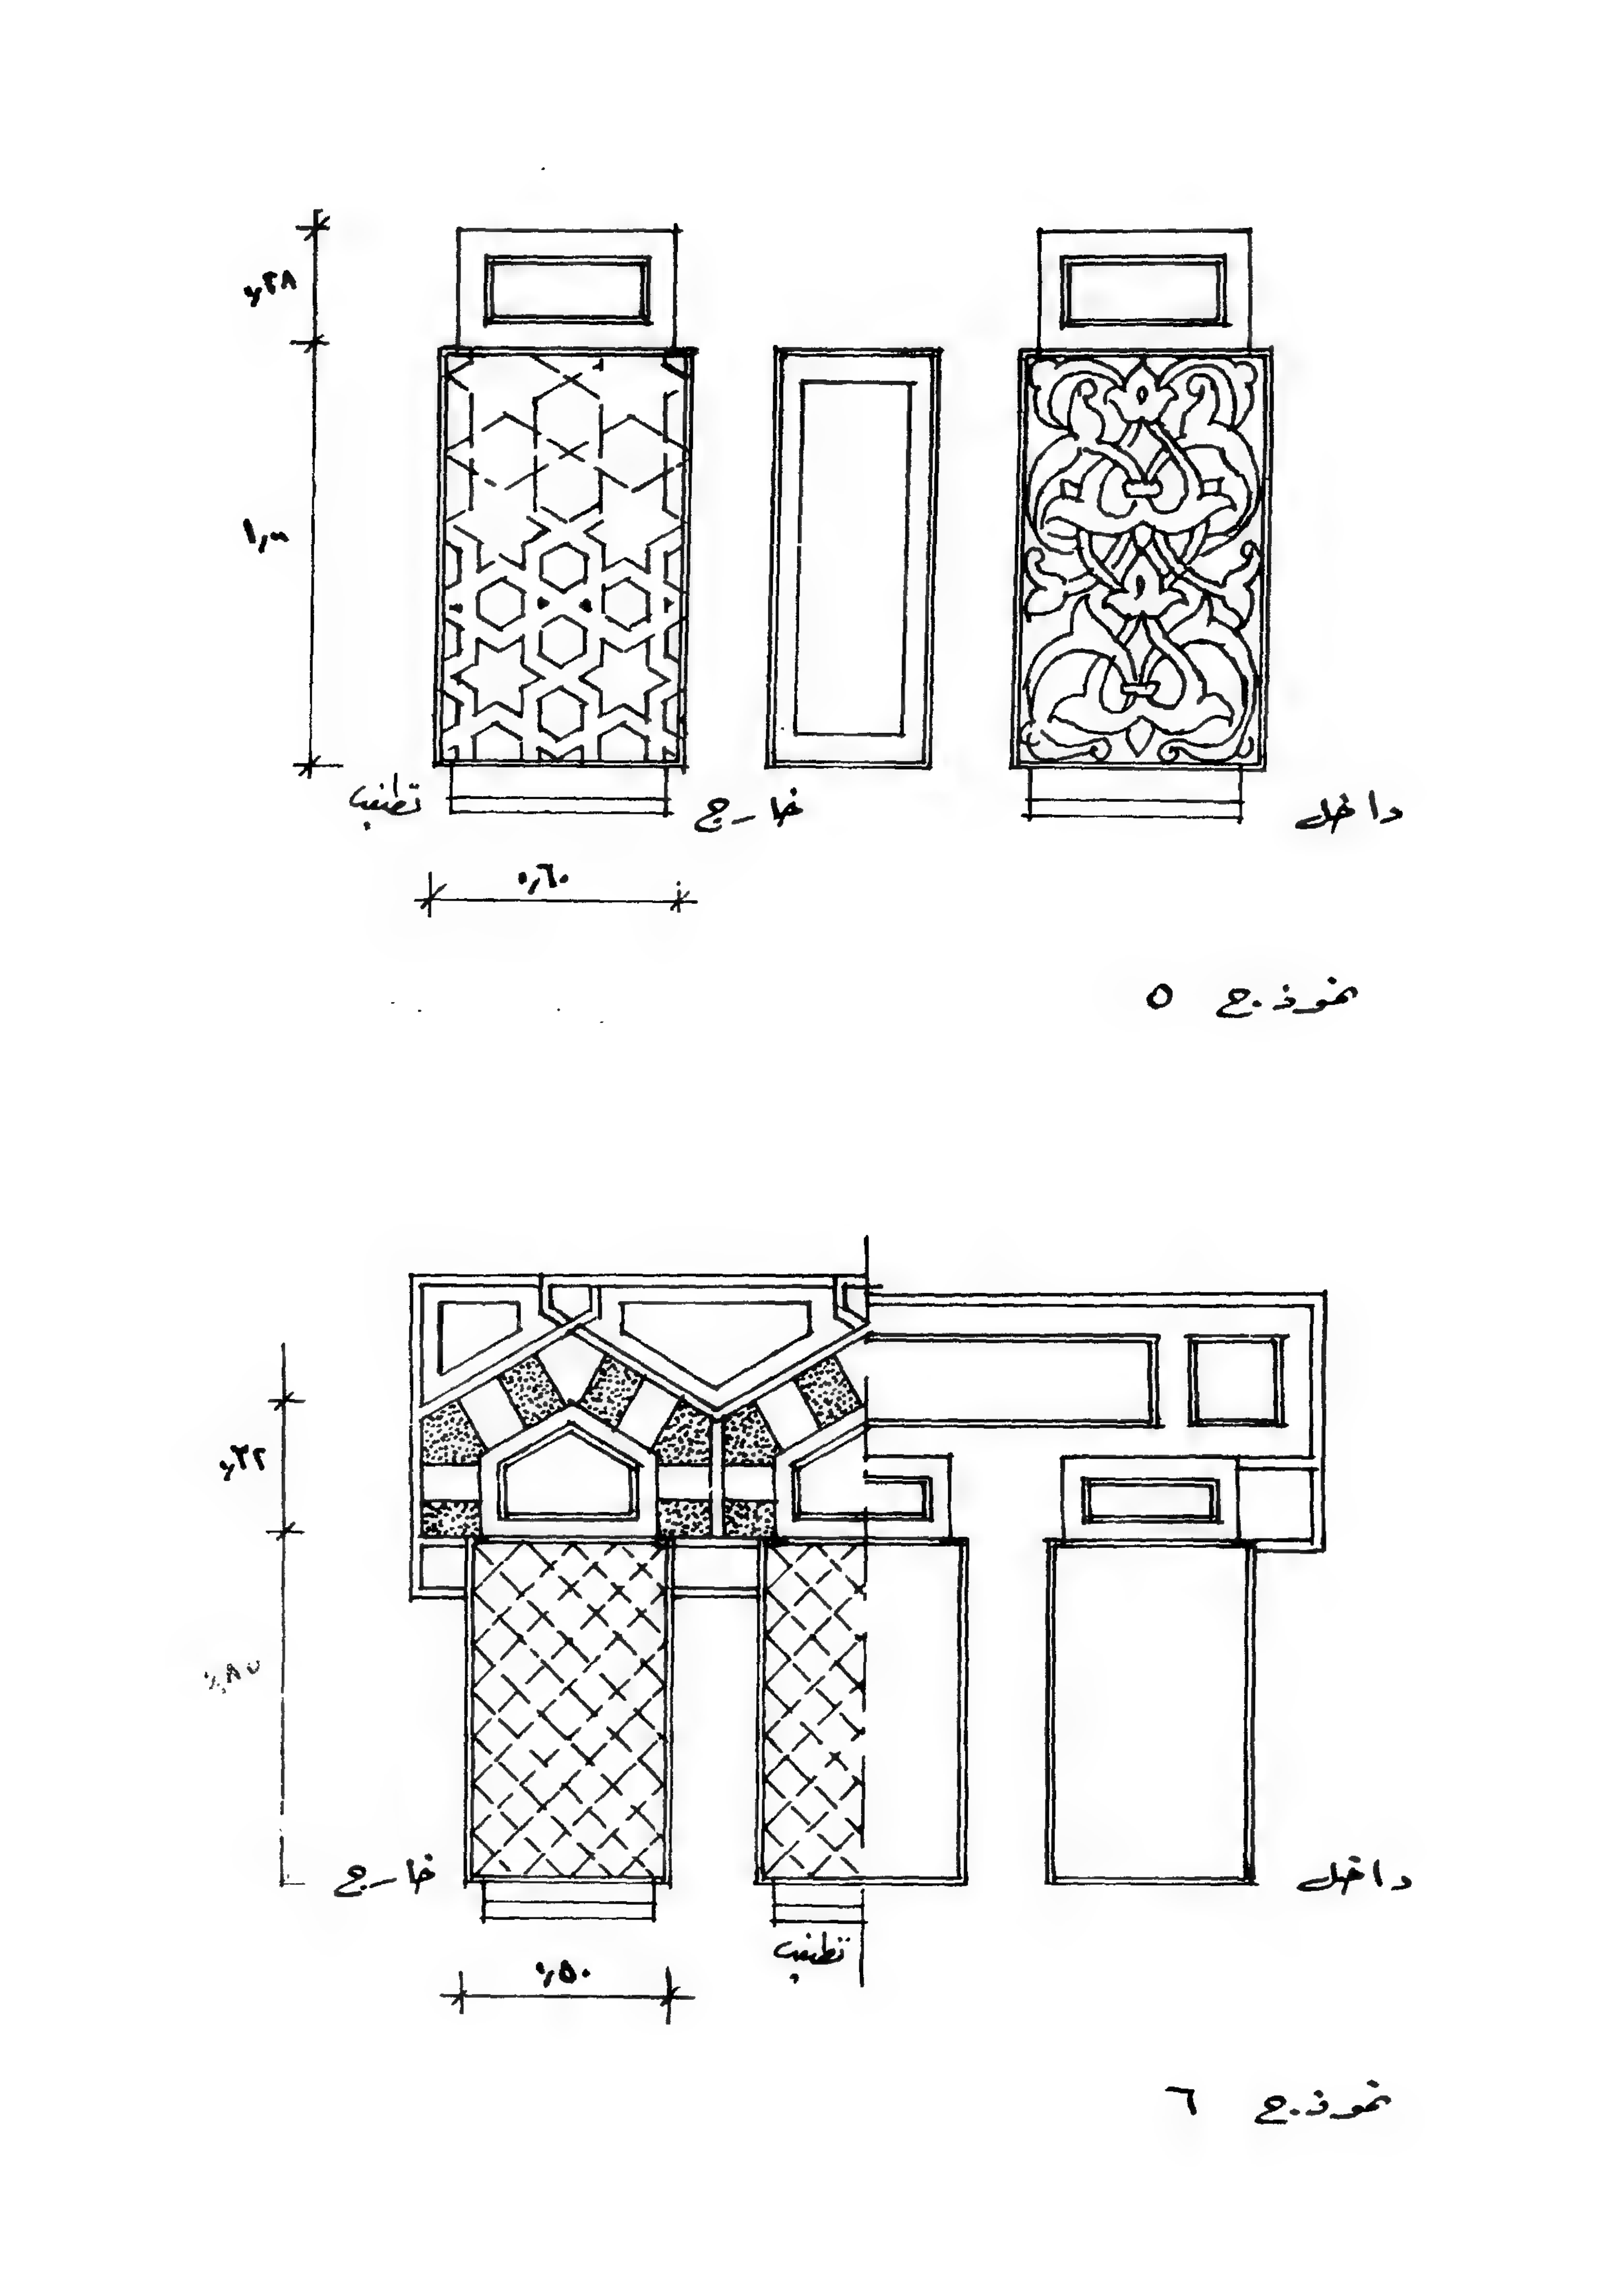 ٠,٢٨
١,٠٠
تطنيب
خارج
داخل
٠,٦٠
نموذج ٥
٠,٣٢
خارج
داخل
تطنيب
٠,٥٠
نموذج ٦